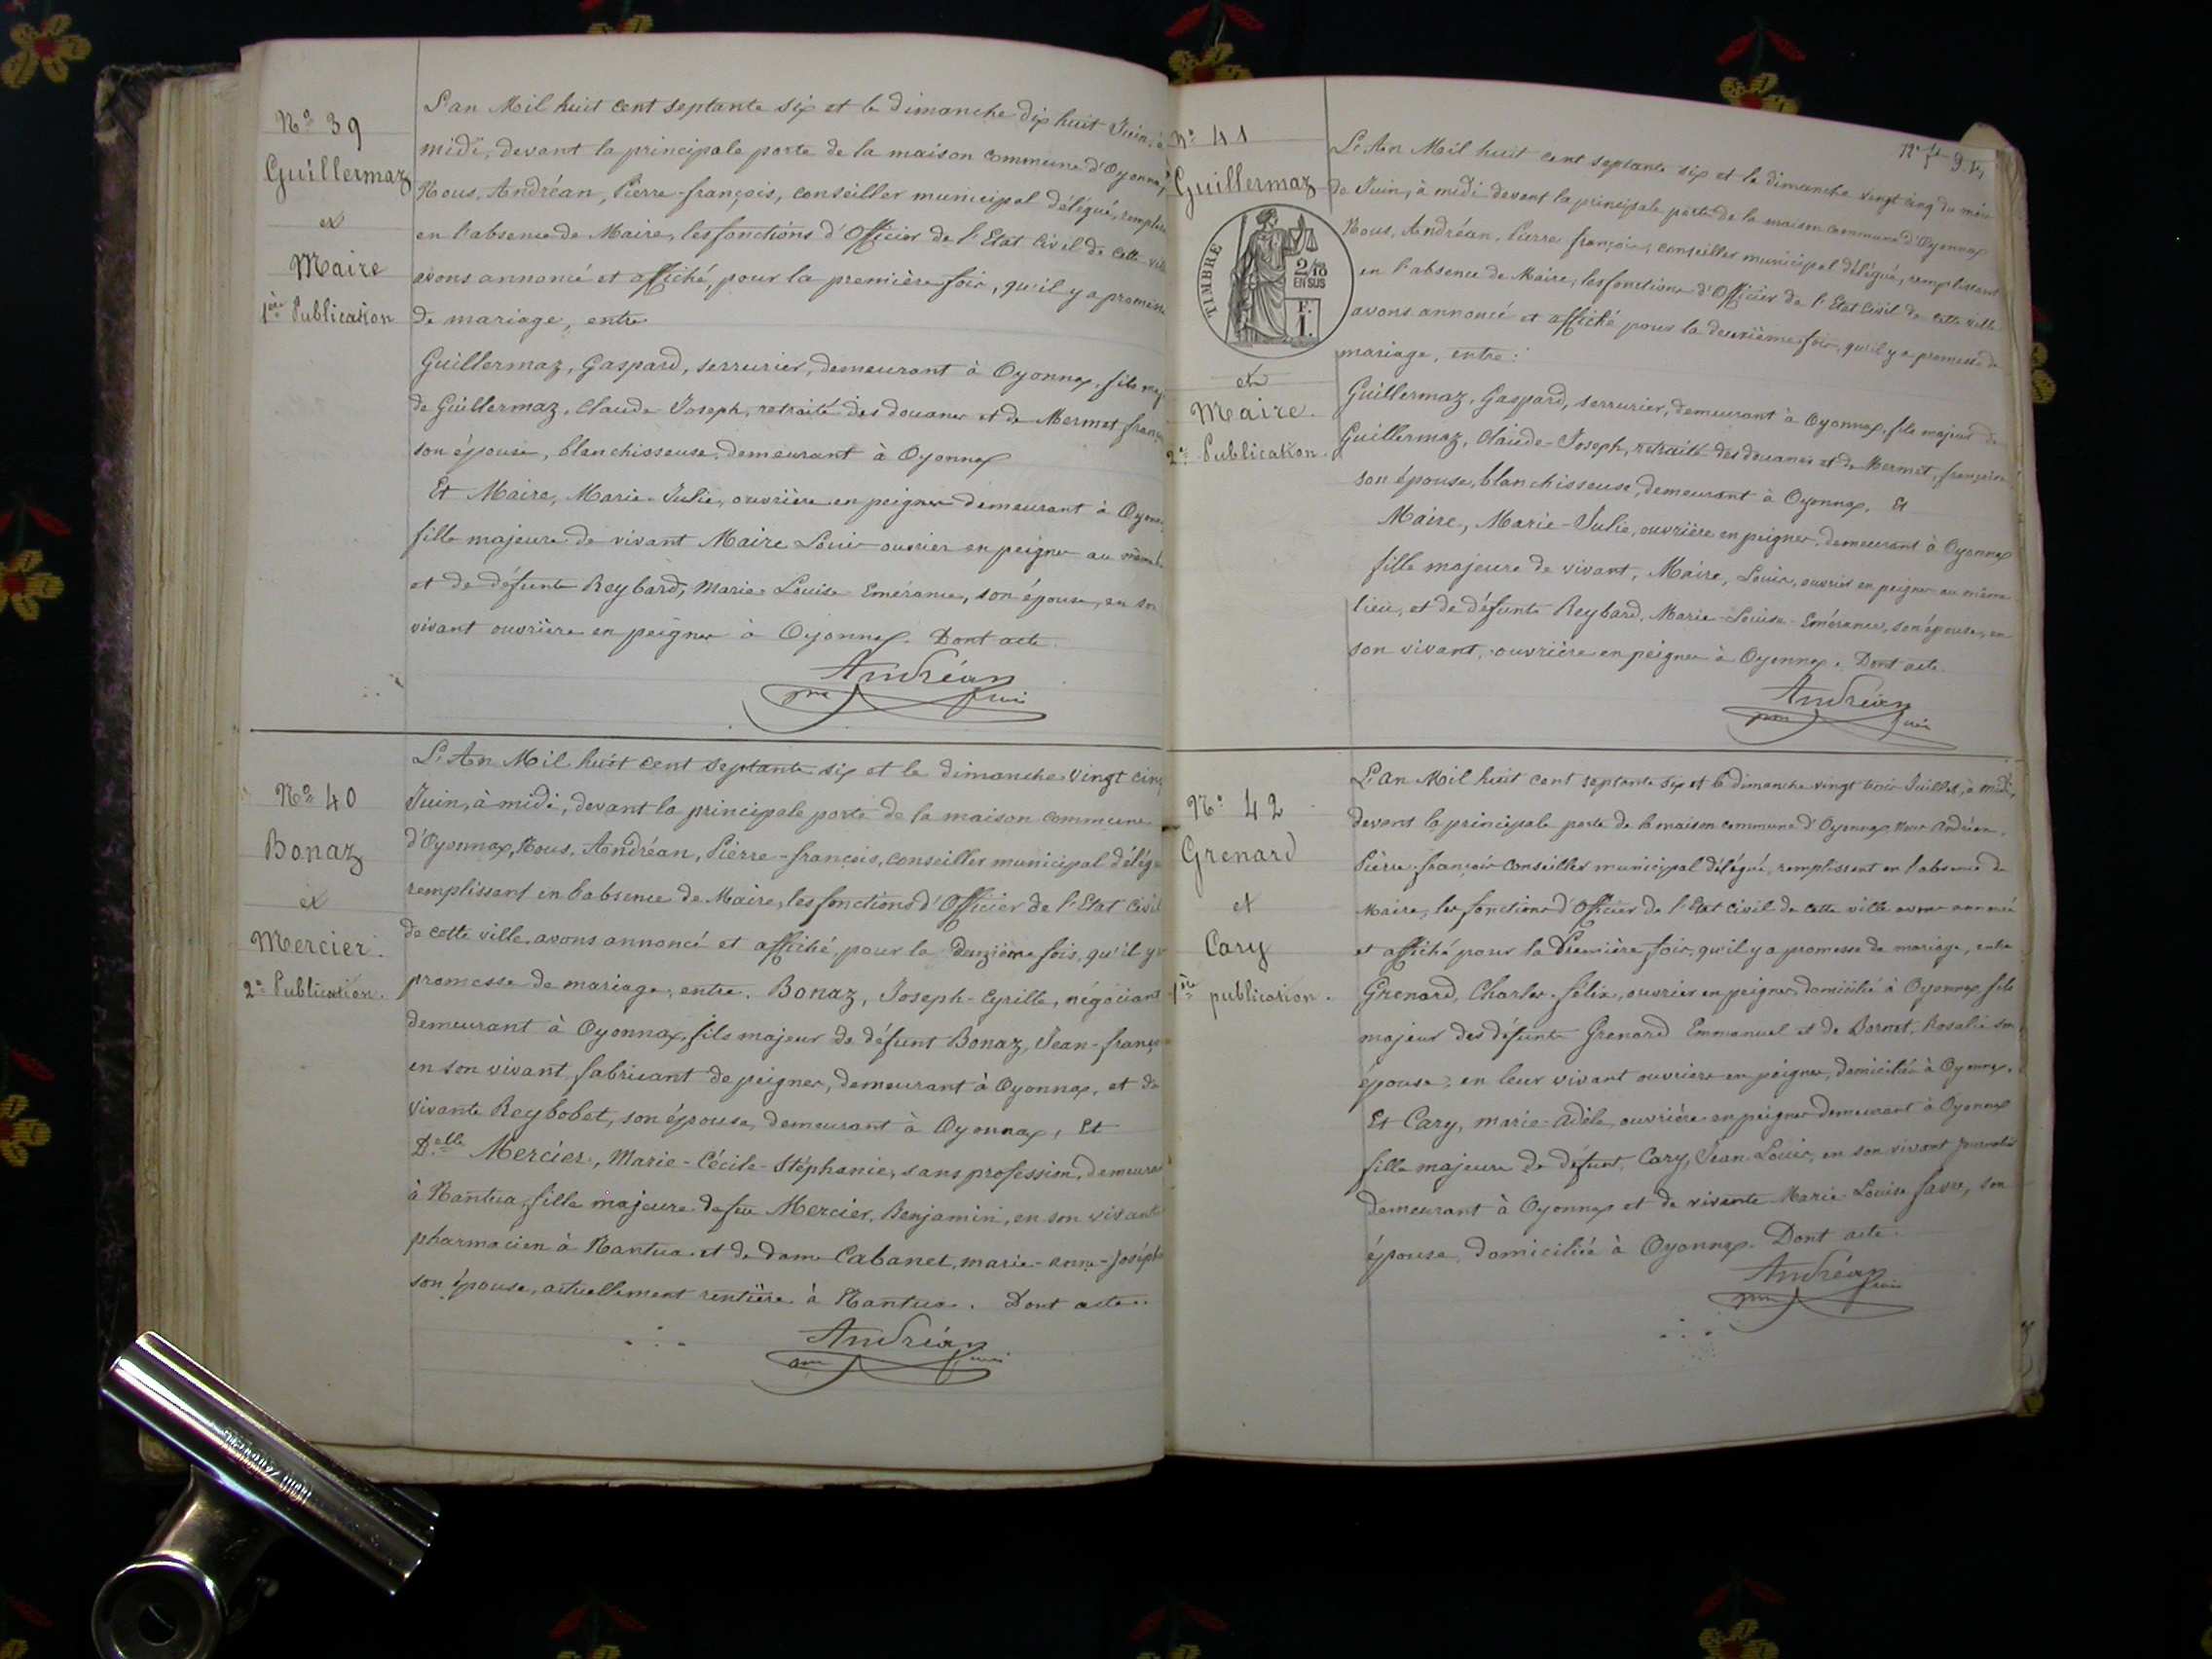 Nº 39
Guillermaz
et
Maire
1ère Publication
L'an Mil huit cent septante six et le dimanche dix huit Juin, à
midi, devant la principale porte de la maison commune d'Oyonnax,
Nous, Andréan, Pierre-françois, conseiller municipal délégué, remplis
en l'absence de Maire, les fonctions d'Officier de l'Etat Civil de cette vill
avons annoncé et affiché, pour la première fois, qu'il y a promesse
de mariage, entre
Guillermaz, Gaspard, serrurier, demeurant à Oyonnax, fils maj
de Guillermaz, Claude Joseph, retraité des douanes et de Mermet franç
son épouse, blanchisseuse, demeurant à Oyonnax
Et Maire, Marie-Julie, ouvrière en peignes demeurant à Oyonn
fille majeure de vivant Maire Louis ouvrier en peignes au même
et de défunte Reybard, Marie-Louise-Emérance, son épouse, en son
vivant ouvrière en peignes à Oyonnax. Dont acte.
Andréan
Nº 40
Bonaz
et
Mercier.
2e Publication.
L'An Mil huit cent septante six et le dimanche vingt cinq
Juin, à midi, devant la principale porte de la maison commune
d'Oyonnax, Nous, Andréan, Pierre-françois, conseiller municipal délég
remplissant en l'absence de Maire, les fonctions d'Officier de l'Etat Civil
de cette ville, avons annoncé et affiché, pour la deuxième fois, qu'il y a
promesse de mariage, entre. Bonaz, Joseph-Cyrille, négociant
demeurant à Oyonnax, fils majeur de défunt Bonaz, Jean-franço
en son vivant, fabricant de peignes, demeurant à Oyonnax, et de
vivante Reybobet, son épouse, demeurant à Oyonnax, Et
Delle Mercier, Marie-Cécile-Stéphanie, sans profession, demeura
à Nantua, fille majeure de feu Mercier, Benjamin, en son vivant
pharmacien à Nantua et de dame Cabanet, marie-anne-Joséph
son épouse, actuellement rentière à Nantua. Dont acte.
Andréan
Nº 41
Guillermaz
TIMBRE
2/10
EN SUS
F.
1.
et
Maire.
2e Publication.
L'An Mil huit cent septante six et le dimanche vingt cinq du mois
de Juin, à midi devant la principale porte de la maison commune d'Oyonnax
Nous, Andréan, Pierre françois, conseiller municipal délégué, remplissant
en l'absence de Maire, les fonctions d'Officier de l'Etat Civil de cette ville
avons annoncé et affiché pour la deuxième fois, qu'il y a promesse de
mariage, entre:
Guillermaz, Gaspard, serrurier, demeurant à Oyonnax, fils majeur de
Guillermaz, Claude-Joseph, retraité des douanes et de Mermet, françoise
son épouse, blanchisseuse, demeurant à Oyonnax. Et
Maire, Marie-Julie, ouvrière en peignes, demeurant à Oyonnax
fille majeure de vivant, Maire, Louis, ouvrier en peignes au même
lieu, et de défunte Reybard, Marie-Louise-Emérance, son épouse, en
son vivant, ouvrière en peignes à Oyonnax. Dont acte.
Andréan
Nº 42
Grenard
et
Cary
1ère publication.
L'An Mil huit cent septante six et le dimanche vingt trois Juillet, à midi,
devant la principale porte de la maison commune d'Oyonnax, Nous Andréan,
Pierre-françois conseiller municipal délégué, remplissant en l'absence de
Maire, les fonctions d'Officier de l'Etat Civil de cette ville avons annoncé
et affiché pour la Première fois, qu'il y a promesse de mariage, entre
Grenard, Charles-félix, ouvrier en peignes domicilié à Oyonnax fils
majeur des défunts Grenard Emmanuel et de Bornet, Rosalie son
épouse, en leur vivant ouvriers en peignes, domiciliés à Oyonnax.
Et Cary, marie-adèle, ouvrière en peignes demeurant à Oyonnax
fille majeure de défunt, Cary, Jean-Louis, en son vivant journalier
demeurant à Oyonnax et de vivante Marie-Louise favre, son
épouse, domiciliée à Oyonnax. Dont acte.
Andréan